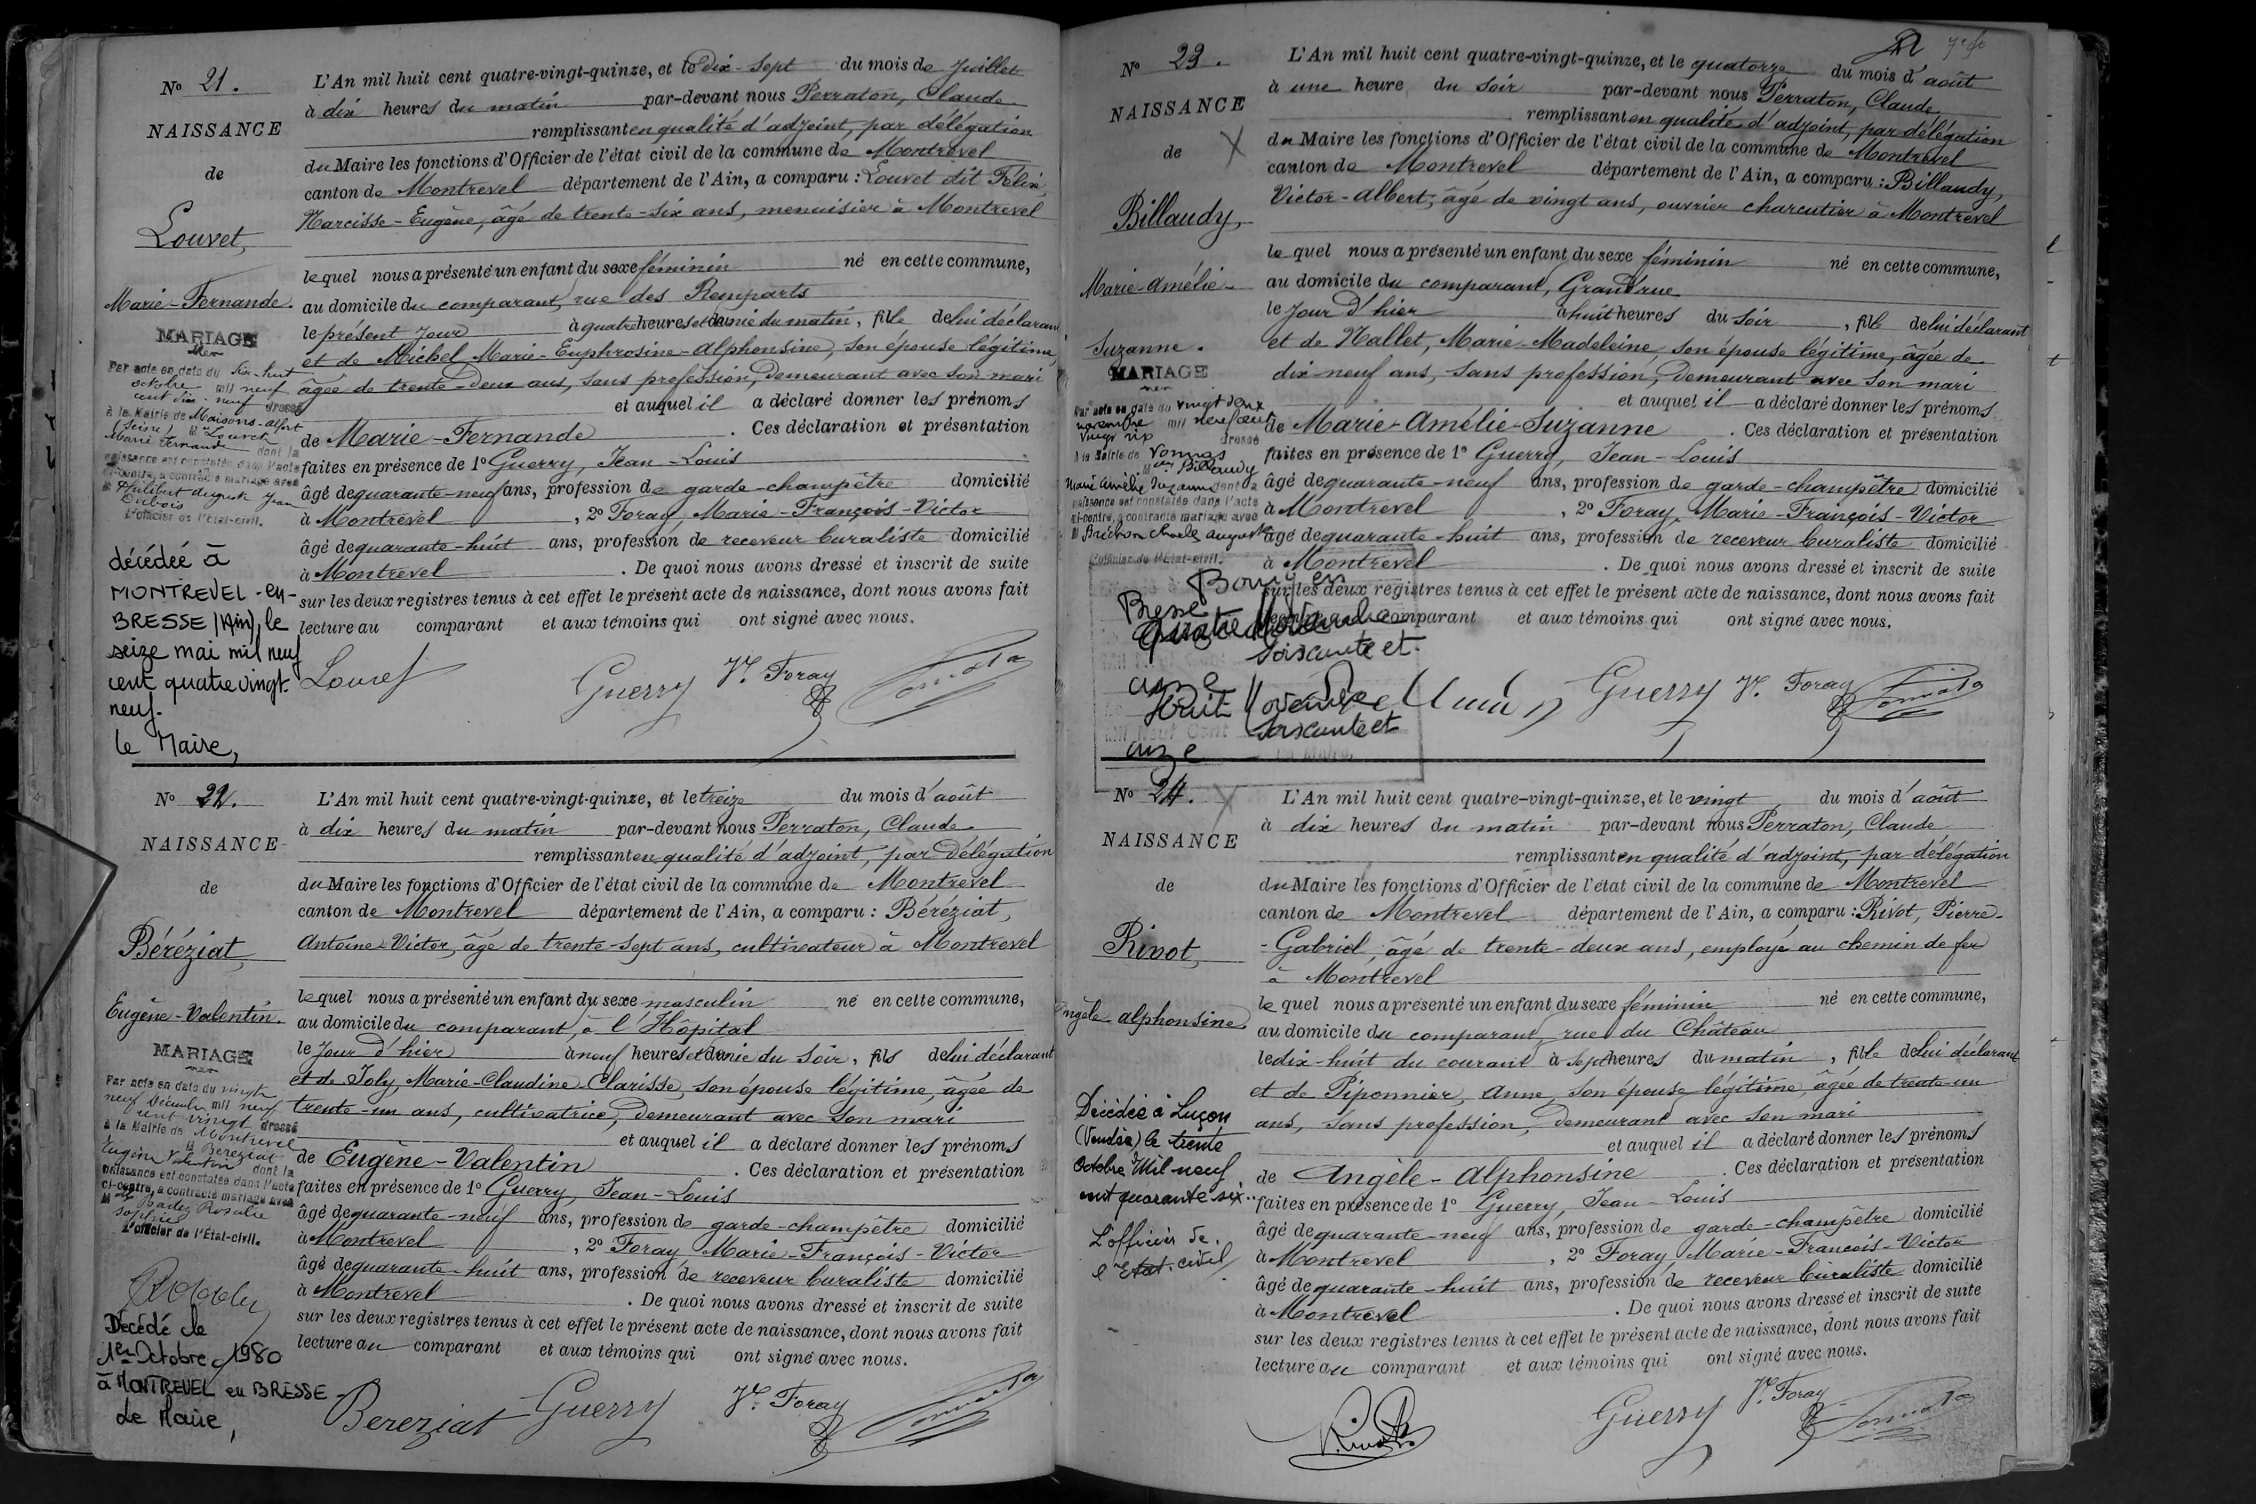 No 21.
NAISSANCE
de
Louvet,
Marie-Fernande.
MARIAGE
Par acte en date du dix-huit
octobre mil neuf
cent dix-neuf dressé
à la Mairie de Maisons-Alfort
(Seine) Louvet
Marie Fernande dont la
naissance est constatée dans l'acte
ci-contre, a contracté mariage avec
Philibert Auguste Jean
L'officier de l'État-civil.
décédée à
MONTREVEL-en-
BRESSE (Ain), le
seize mai mil neuf
cent quatre vingt-
neuf.
le Maire,
L'An mil huit cent quatre-vingt-quinze, et le dix-sept du mois de Juillet
à dix heures du matin par-devant nous Perraton, Claude
remplissant en qualité d'adjoint, par délégation
du Maire les fonctions d'Officier de l'état civil de la commune de Montrevel
canton de Montrevel département de l'Ain, a comparu : Louvet dit Félix,
Narcisse-Eugène, âgé de trente-six ans, menuisier à Montrevel
lequel nous a présenté un enfant du sexe féminin né en cette commune,
au domicile du comparant, rue des Remparts
le présent jour à quatre heures et demie du matin, fille de lui déclarant
et de Michel Marie-Euphrosine-Alphonsine, son épouse légitime,
âgée de trente-deux ans, sans profession, demeurant avec son mari
et auquel il a déclaré donner les prénoms
de Marie-Fernande . Ces déclaration et présentation
faites en présence de 1º Guerry, Jean-Louis
âgé de quarante-neuf ans, profession de garde-champêtre domicilié
à Montrevel , 2º Foray, Marie-François-Victor
âgé de quarante-huit ans, profession de receveur buraliste domicilié
à Montrevel . De quoi nous avons dressé et inscrit de suite
sur les deux registres tenus à cet effet le présent acte de naissance, dont nous avons fait
lecture au comparant et aux témoins qui ont signé avec nous.
Louvet Guerry Vr. Foray
No 22.
NAISSANCE
de
Béréziat,
Eugène-Valentin.
MARIAGE
Par acte en date du vingt
neuf Décembre mil neuf
cent vingt dressé
à la Mairie de Montrevel
M Béréziat
Eugène Valentin dont la
naissance est constatée dans l'acte
ci-contre, a contracté mariage avec
Rosalie
L'officier de l'État-civil.
Décédé le
1er Octobre 1980
à MONTREVEL en BRESSE
Le Maire,
L'An mil huit cent quatre-vingt-quinze, et le treize du mois d'août
à dix heures du matin par-devant nous Perraton, Claude
remplissant en qualité d'adjoint, par délégation
du Maire les fonctions d'Officier de l'état civil de la commune de Montrevel
canton de Montrevel département de l'Ain, a comparu : Béréziat,
Antoine-Victor, âgé de trente-sept ans, cultivateur à Montrevel
lequel nous a présenté un enfant du sexe masculin né en cette commune,
au domicile du comparant, à l'Hôpital
le jour d'hier à neuf heures et demie du soir, fils de lui déclarant
et de Joly, Marie-Claudine-Clarisse, son épouse légitime, âgée de
trente-un ans, cultivatrice, demeurant avec son mari
et auquel il a déclaré donner les prénoms
de Eugène-Valentin . Ces déclaration et présentation
faites en présence de 1º Guerry, Jean-Louis
âgé de quarante-neuf ans, profession de garde-champêtre domicilié
à Montrevel , 2º Foray Marie-François-Victor
âgé de quarante-huit ans, profession de receveur buraliste domicilié
à Montrevel . De quoi nous avons dressé et inscrit de suite
sur les deux registres tenus à cet effet le présent acte de naissance, dont nous avons fait
lecture au comparant et aux témoins qui ont signé avec nous.
Bereziat Guerry Vr. Foray
No 23.
NAISSANCE
de
Billaudy,
Marie-Amélie-
Suzanne.
MARIAGE
Par acte en date du vingt deux
novembre mil neuf cent
dressé
à la Mairie de Vonnas
Billaudy
Marie Amélie Suzanne dont la
naissance est constatée dans l'acte
ci-contre, a contracté mariage avec
M Charles Auguste
L'officier de l'État-civil.
Bourg en
Bresse
soixante et
onze
Huit Novembre
soixante et
onze
L'An mil huit cent quatre-vingt-quinze, et le quatorze du mois d'août
à une heure du soir par-devant nous Perraton, Claude
remplissant en qualité d'adjoint, par délégation
du Maire les fonctions d'Officier de l'état civil de la commune de Montrevel
canton de Montrevel département de l'Ain, a comparu : Billaudy,
Victor-Albert, âgé de vingt ans, ouvrier charcutier à Montrevel
lequel nous a présenté un enfant du sexe féminin né en cette commune,
au domicile du comparant, Grand'rue
le jour d'hier à huit heures du soir , fille de lui déclarant
et de Nallet, Marie-Madeleine, son épouse légitime, âgée de
dix-neuf ans, sans profession, demeurant avec son mari
et auquel il a déclaré donner les prénoms
de Marie-Amélie-Suzanne . Ces déclaration et présentation
faites en présence de 1º Guerry, Jean-Louis
âgé de quarante-neuf ans, profession de garde-champêtre domicilié
à Montrevel , 2º Foray, Marie-François-Victor
âgé de quarante-huit ans, profession de receveur buraliste domicilié
à Montrevel . De quoi nous avons dressé et inscrit de suite
sur les deux registres tenus à cet effet le présent acte de naissance, dont nous avons fait
lecture au comparant et aux témoins qui ont signé avec nous.
Guerry Vr. Foray
No 24.
NAISSANCE
de
Rivot,
Angèle alphonsine
Décédée à Luçon
(Vendée) le trente
Octobre Mil-neuf
cent quarante six..
L'officier de
l'Etat-civil
L'An mil huit cent quatre-vingt-quinze, et le vingt du mois d'août
à dix heures du matin par-devant nous Perraton, Claude
remplissant en qualité d'adjoint, par délégation
du Maire les fonctions d'Officier de l'état civil de la commune de Montrevel
canton de Montrevel département de l'Ain, a comparu : Rivot, Pierre-
-Gabriel, âgé de trente-deux ans, employé au chemin de fer
à Montrevel
lequel nous a présenté un enfant du sexe féminin né en cette commune,
au domicile du comparant, rue du Château
le dix-huit du courant à sept heures du matin , fille de lui déclarant
et de Piponnier, Anne, son épouse légitime, âgée de trente-un
ans, sans profession, demeurant avec son mari
et auquel il a déclaré donner les prénoms
de Angèle-Alphonsine . Ces déclaration et présentation
faites en présence de 1º Guerry, Jean-Louis
âgé de quarante-neuf ans, profession de garde-champêtre domicilié
à Montrevel , 2º Foray Marie-François-Victor
âgé de quarante-huit ans, profession de receveur buraliste domicilié
à Montrevel . De quoi nous avons dressé et inscrit de suite
sur les deux registres tenus à cet effet le présent acte de naissance, dont nous avons fait
lecture au comparant et aux témoins qui ont signé avec nous.
Guerry Vr. Foray